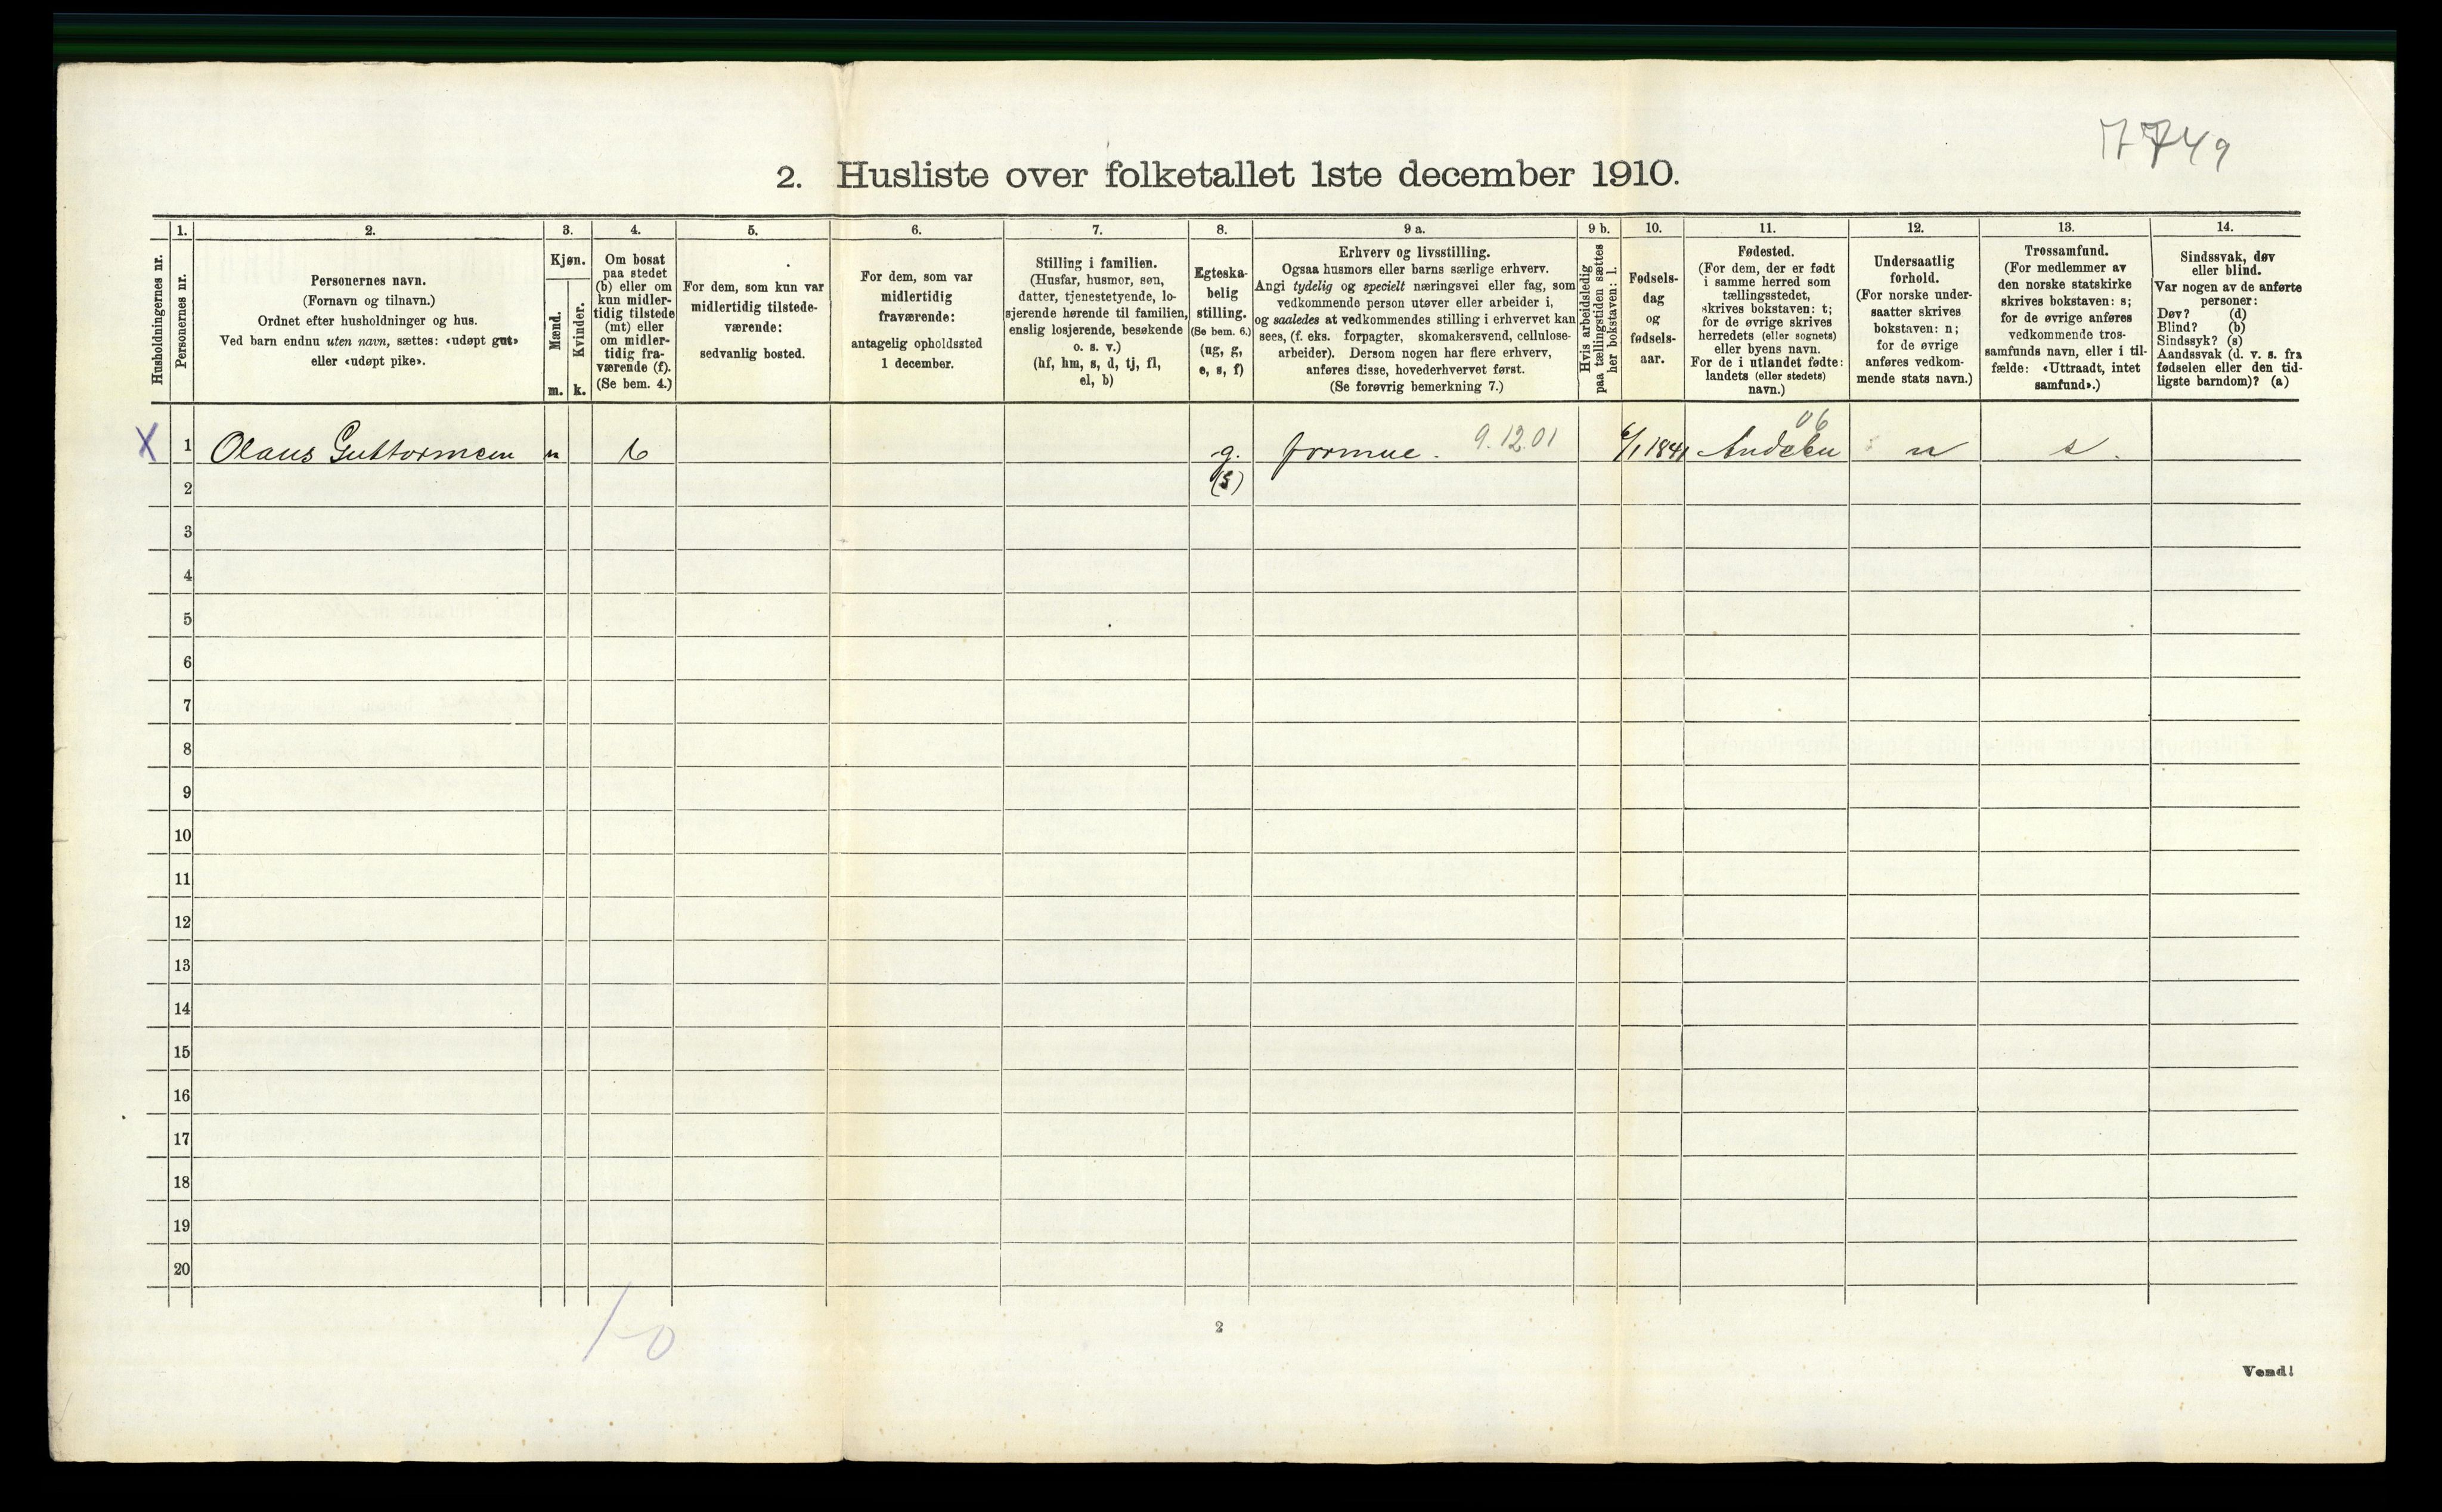 7749
2. Husliste over folketallet 1ste december 1910.
1. 2. 3. 4. 5. 6. 7. 8. 9 a. 9 b. 10. 11. 12. 13. 14.
Husholdningernes nr.
Personernes nr.
Personernes navn.
(Fornavn og tilnavn.)
Ordnet efter husholdninger og hus.
Ved barn endnu uten navn, sættes: «udøpt gut»
eller «udøpt pike».
Kjøn.
Mænd.
Kvinder.
m. k.
Om bosat
paa stedet
(b) eller om
kun midler-
tidig tilstede
(mt) eller
om midler-
tidig fra-
værende (f).
(Se bem. 4.)
For dem, som kun var
midlertidig tilstede-
værende:
sedvanlig bosted.
For dem, som var
midlertidig
fraværende:
antagelig opholdssted
1 december.
Stilling i familien.
(Husfar, husmor, søn,
datter, tjenestetyende, lo-
sjerende hørende til familien,
enslig losjerende, besøkende
o. s. v.)
(hf, hm, s, d, tj, fl,
el, b)
Egteska-
belig
stilling.
(Se bem. 6.)
(ug, g,
e, s, f)
Erhverv og livsstilling.
Ogsaa husmors eller barns særlige erhverv.
Angi tydelig og specielt næringsvei eller fag, som
vedkommende person utøver eller arbeider i,
og saaledes at vedkommendes stilling i erhvervet kan
sees, (f. eks. forpagter, skomakersvend, cellulose-
arbeider). Dersom nogen har flere erhverv,
anføres disse, hovederhvervet først.
(Se forøvrig bemerkning 7.)
Hvis arbeidsledig
paa tællingstiden sættes
her bokstaven: l.
Fødsels-
dag
og
fødsels-
aar.
Fødested.
(For dem, der er født
i samme herred som
tællingsstedet,
skrives bokstaven: t;
for de øvrige skrives
herredets (eller sognets)
eller byens navn.
For de i utlandet fødte:
landets (eller stedets)
navn.)
Undersaatlig
forhold.
(For norske under-
saatter skrives
bokstaven: n;
for de øvrige
anføres vedkom-
mende stats navn.)
Trossamfund.
(For medlemmer av
den norske statskirke
skrives bokstaven: s;
for de øvrige anføres
vedkommende tros-
samfunds navn, eller i til-
fælde: «Uttraadt, intet
samfund».)
Sindssvak, døv
eller blind.
Var nogen av de anførte
personer:
Døv? (d)
Blind? (b)
Sindssyk? (s)
Aandssvak (d. v. s. fra
fødselen eller den tid-
ligste barndom)? (a)
06
X 1 Olaus Guttormsen m b g. formue. 9.12.01 6/1 1841 Andebu n s.
2 (s)
3
4
5
6
7
8
9
10
11
12
13
14
15
16
17
18
19
20
1-0
2
Vend!